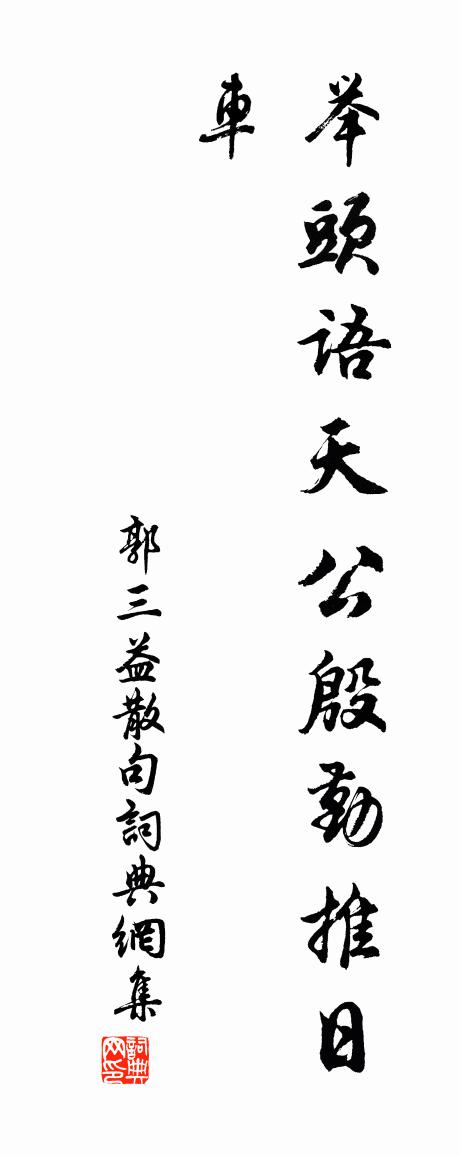 举頭語天公殷勤推日
車
郭三益散句詞典網集
詞典
网印